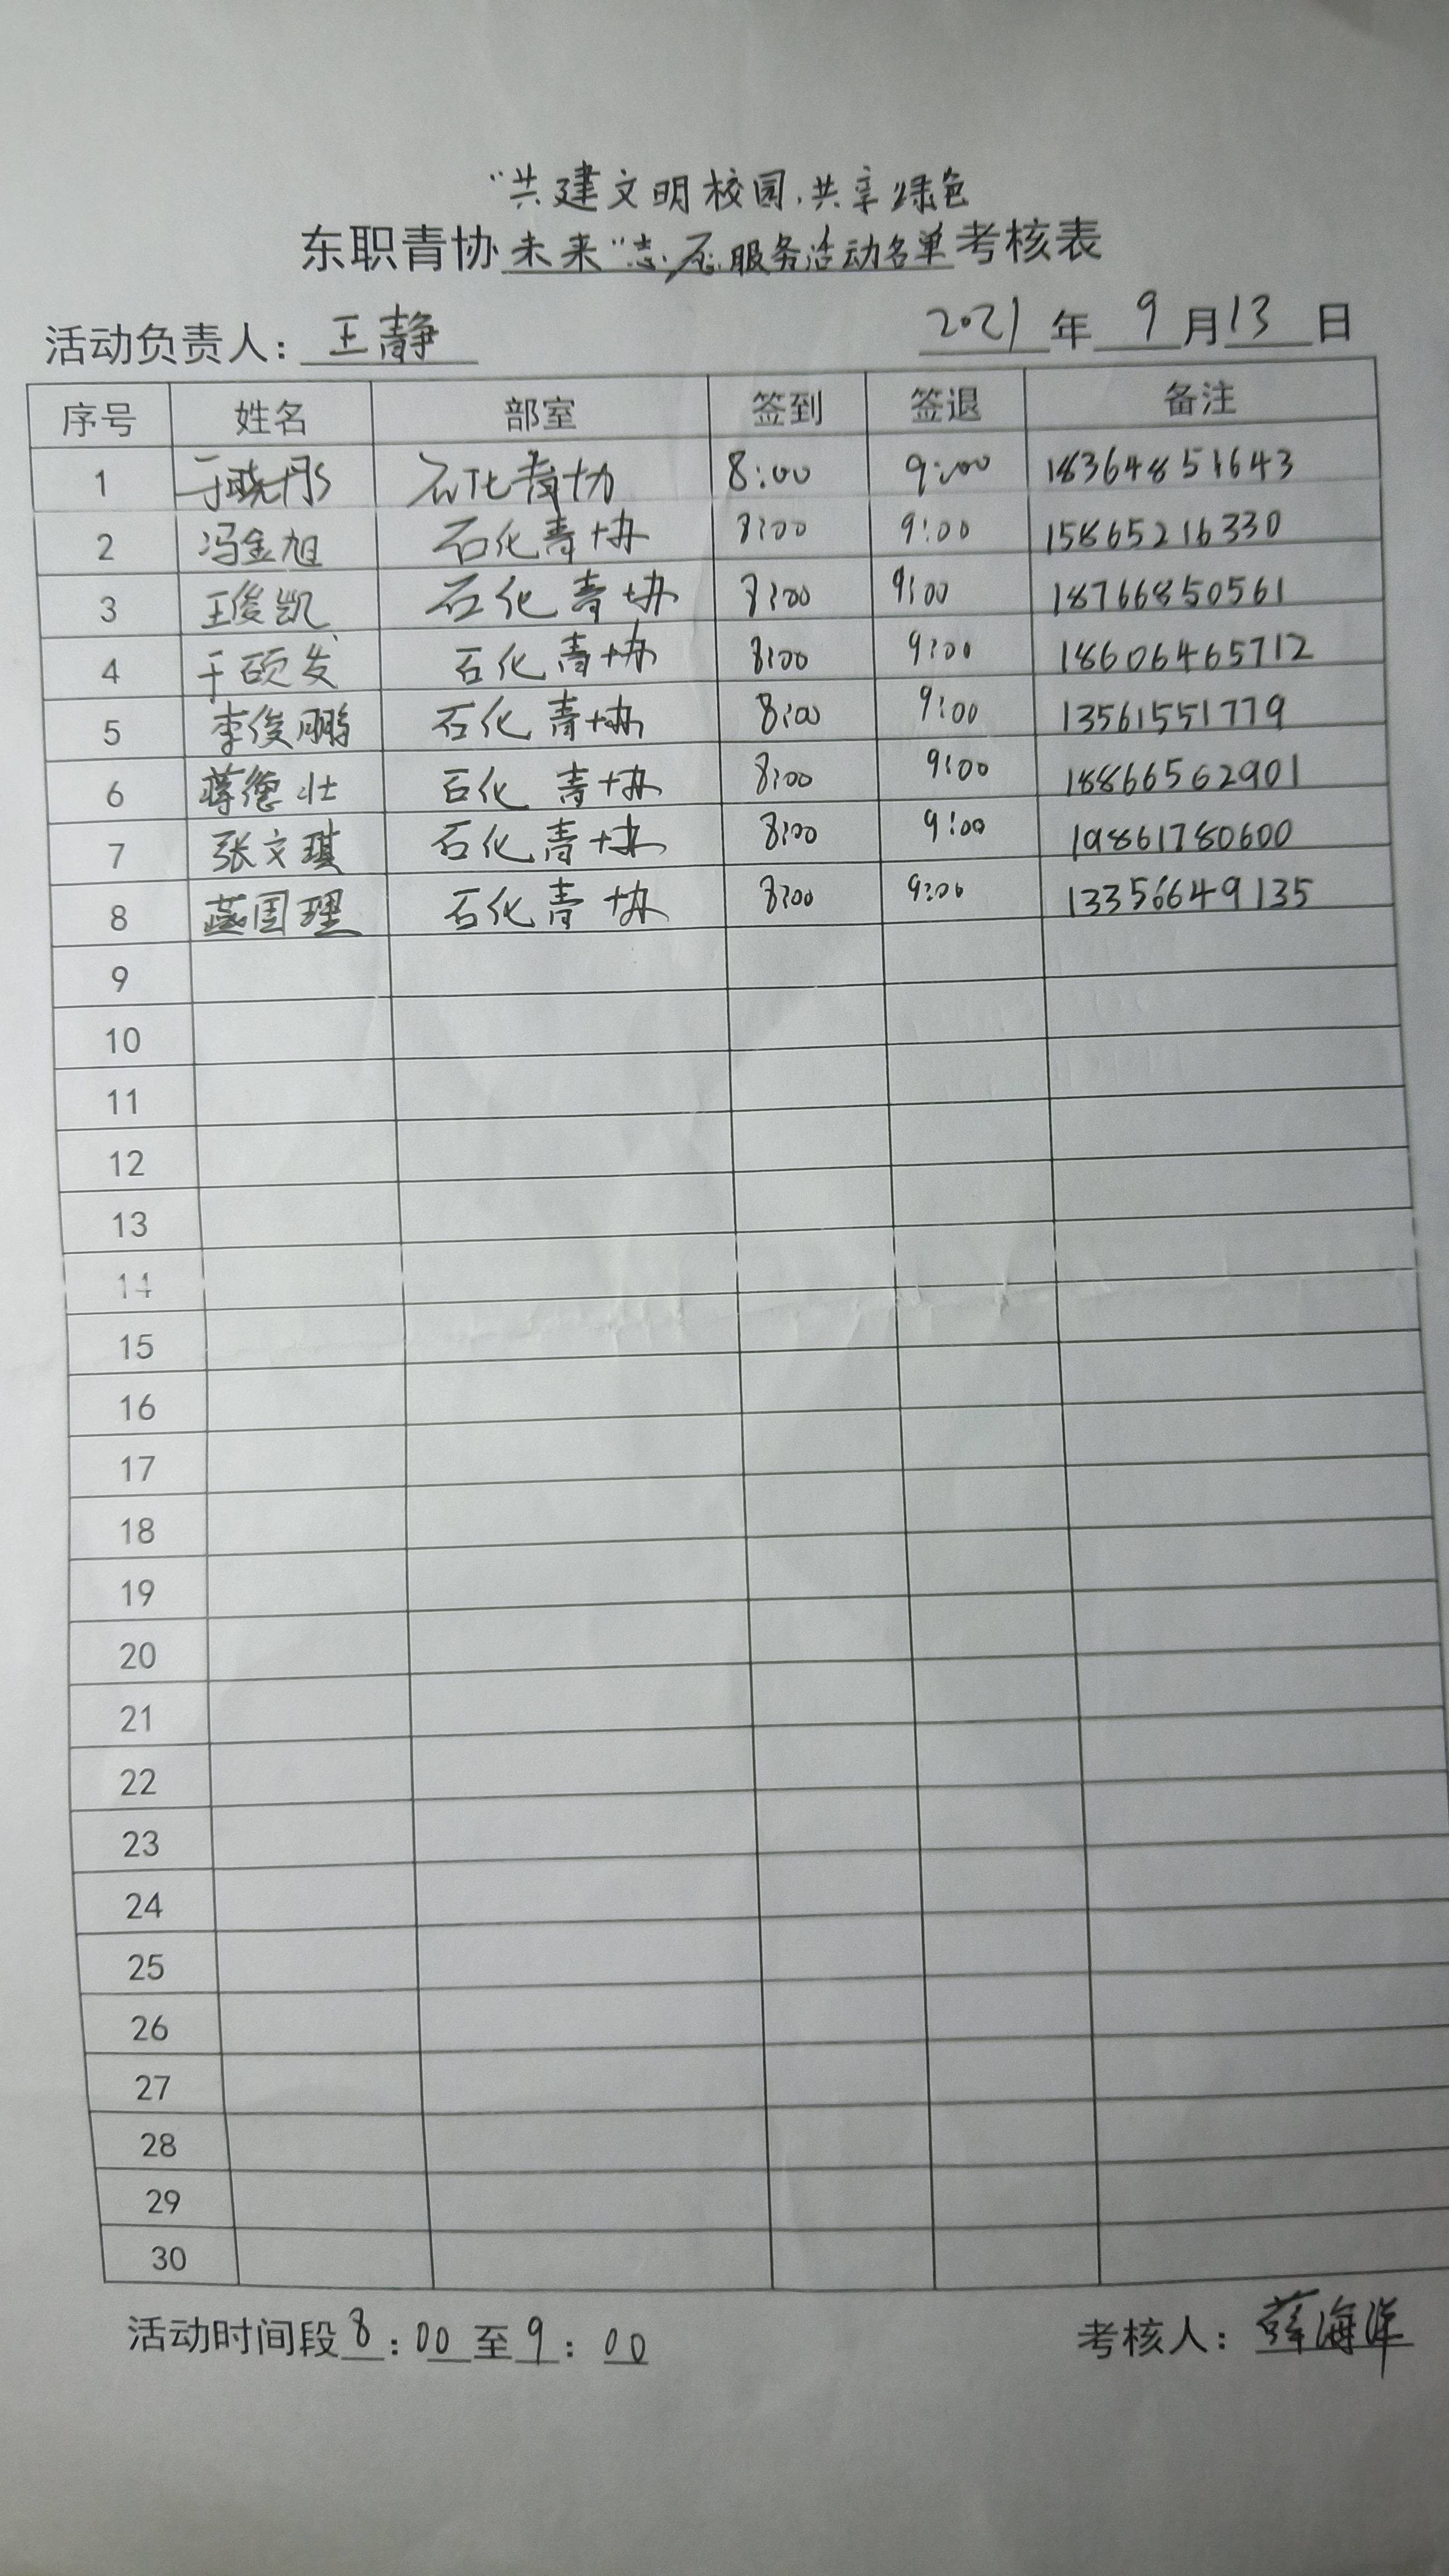 “共建文明校园，共享绿色
东职青协未来”志愿服务活动名单考核表
活动负责人：王静 2021年9月13日
序号 姓名 部室 签到 签退 备注
1 于晓彤 石化青协 8:00 9:00 18364851643
2 冯金旭 石化青协 8:00 9:00 15865216330
3 王俊凯 石化青协 8:00 9:00 18766850561
4 于硕发 石化青协 8:00 9:00 18606465712
5 李俊鹏 石化青协 8:00 9:00 13561551779
6 蒋德壮 石化青协 8:00 9:00 18866562901
7 张文琪 石化青协 8:00 9:00 19861780600
8 燕国理 石化青协 8:00 9:00 13356649135
9
10
11
12
13
14
15
16
17
18
19
20
21
22
23
24
25
26
27
28
29
30
活动时间段8:00至9:00 考核人：薛海洋